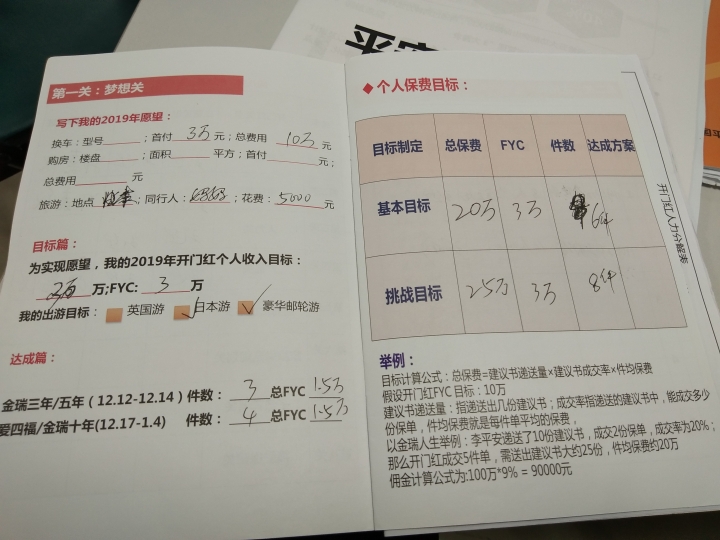 第一关：梦想关
写下我的2019年愿望：
换车：型号 ；首付 3万 元；总费用 10万 元
购房：楼盘 ；面积 平方；首付 元；
总费用 元
旅游：地点 ；同行人： ；花费：5000 元
目标篇：
为实现愿望，我的2019年开门红个人收入目标：
万;FYC: 3 万
我的出游目标： 英国游 日本游 豪华邮轮游
达成篇：
金瑞三年/五年（12.12-12.14）件数： 3 总FYC 1.5万
爱四福/金瑞十年(12.17-1.4) 件数： 4 总FYC 1.5万
◆ 个人保费目标：
目标制定 总保费 FYC 件数 达成方案
基本目标 20万 3万 6件
挑战目标 25万 3万 8件
举例：
目标计算公式：总保费=建议书递送量×建议书成交率×件均保费
假设开门红FYC 目标：10万
建议书递送量：指递送出几份建议书；成交率指递送的建议书中，能成交多少
份保单，件均保费就是每件单平均的保费，
以金瑞人生举例：李平安递送了10份建议书，成交2份保单，成交率为20%；
那么开门红成交5件单，需送出建议书大约25份，件均保费约20万
佣金计算公式为:100万*9% = 90000元
开门红人力分解表